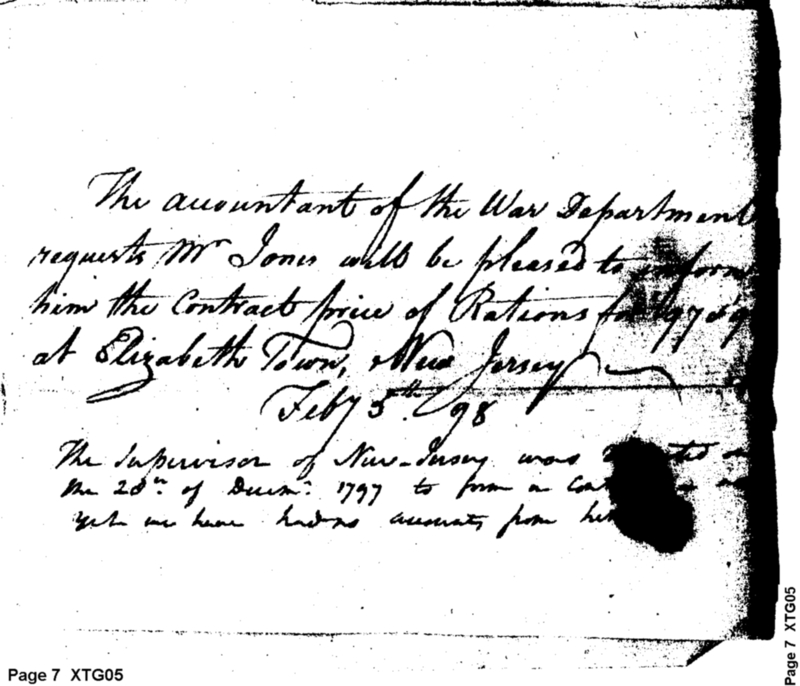 The accountant of the War Department
requests Mr Jones will be pleased to inform
him the Contract price of Rations for 97 & 9
at Elizabeth Town, New Jersey
Feby 5th. 98
The Supervisor of New-Jersey was on
the 28th. of Decemr. 1797 to form a
yet we have had no accounts from
Page 7 XTG05
Page 7 XTG05